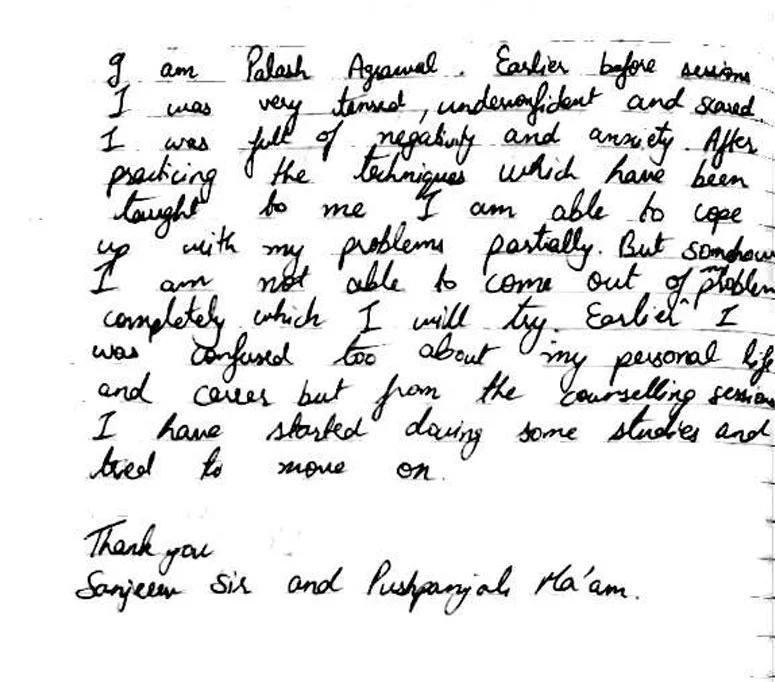 I am Palash Agrawal. Earlier before sessions
I was very tensed, underconfident and scared
I was full of negativity and anxiety. After
practicing the techniques which have been
taught to me I am able to cope
up with my problems partially. But somehow
I am not able to come out of my problem
completely which I will try. Earlier I
was confused too about my personal life
and career but from the counselling session
I have started doing some studies and
tried to move on.
Thank you
Sanjeev Sir and Pushpanjali Ma'am.